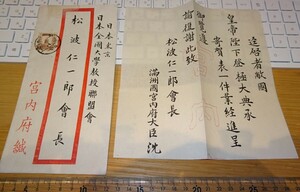 日本東京
日本全國大學教授聯盟會
松波仁一郎會長
宮內府緘
逕啓者敝國
皇帝陛下登極大典承
寄賀表一件業經進呈
御覽
謝此致
松波仁一郎會長
滿洲國宮內府大臣沈